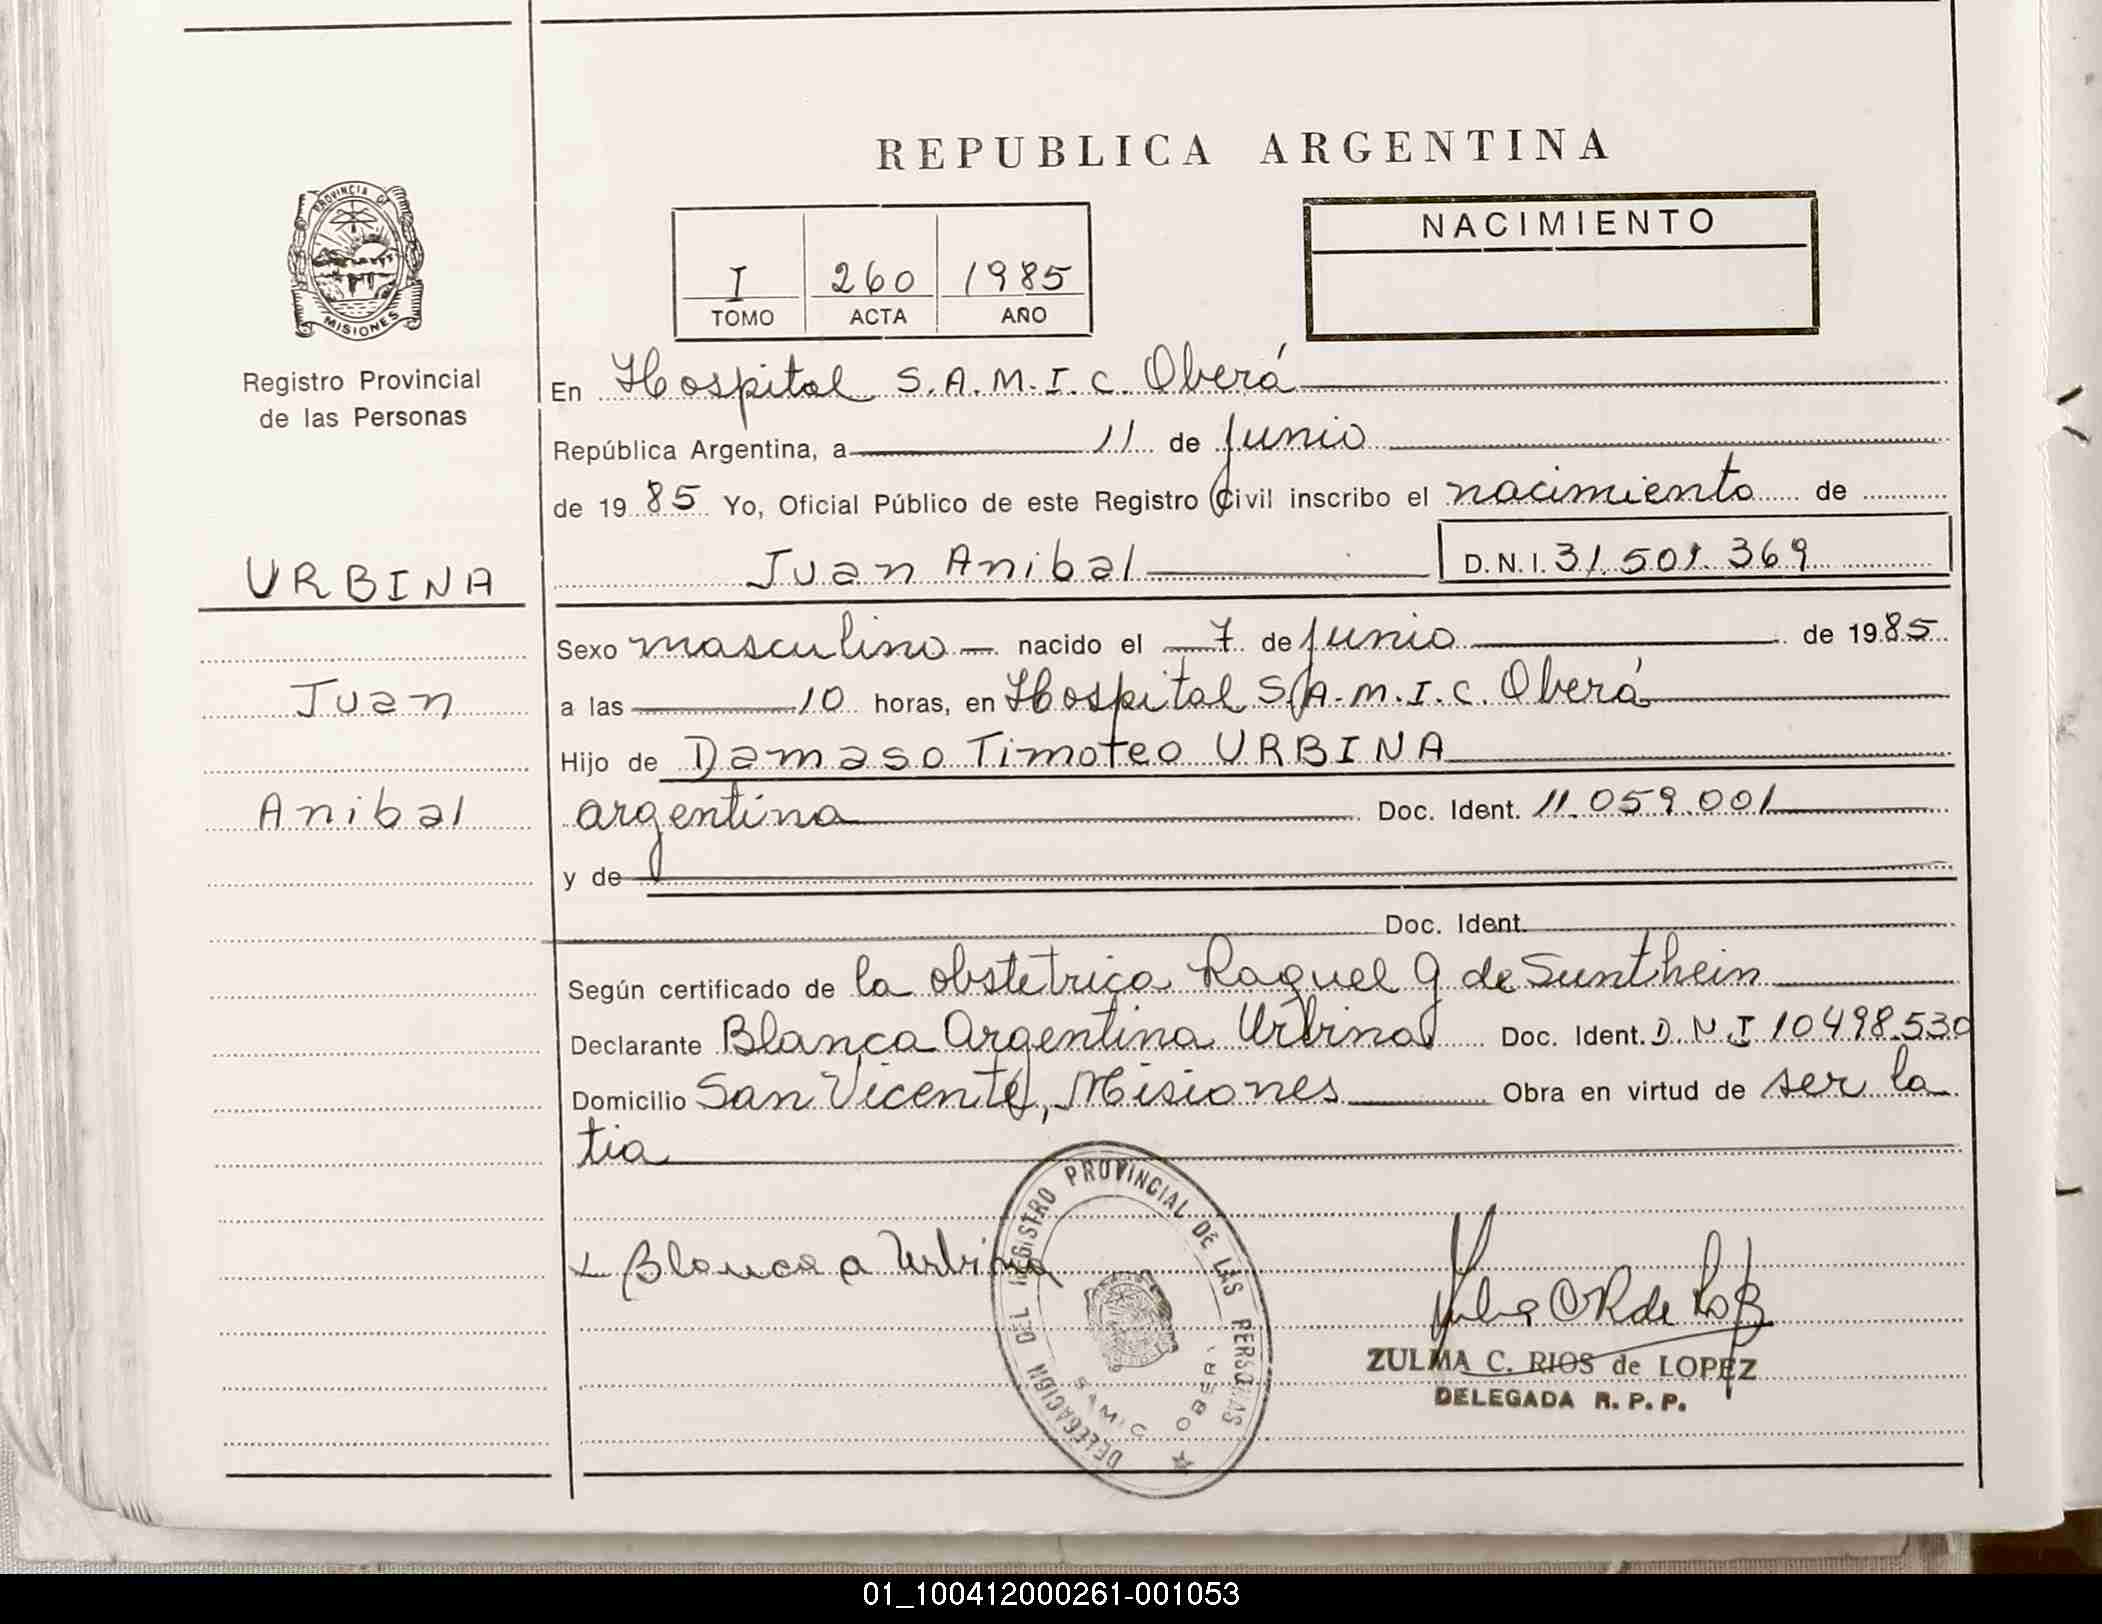 REPUBLICA ARGENTINA
PROVINCIA DE
MISIONES
Registro Provincial
de las Personas
I 260 1985
TOMO ACTA AÑO
NACIMIENTO
En Hospital S.A.M.I.C. Oberá
República Argentina, a 11 de Junio
de 1985 Yo, Oficial Público de este Registro Civil inscribo el nacimiento de
Juan Anibal D.N.I. 31.501.369
URBINA
Juan
Anibal
Sexo masculino nacido el 7 de Junio de 1985
a las 10 horas, en Hospital S.A.M.I.C. Oberá
Hijo de Damaso Timoteo URBINA
argentina Doc. Ident. 11.059.001
y de
Doc. Ident.
Según certificado de la obstetrica Raquel G de Sunthein
Declarante Blanca Argentina Urbina Doc. Ident. D.N.I 10498.530
Domicilio San Vicente, Misiones Obra en virtud de ser la
tia
Blanca a Urbina
DELEGACIÓN DEL REGISTRO PROVINCIAL DE LAS PERSONAS
SAMIC OBERA
ZULMA C. RIOS de LOPEZ
DELEGADA R. P. P.
01_100412000261-001053